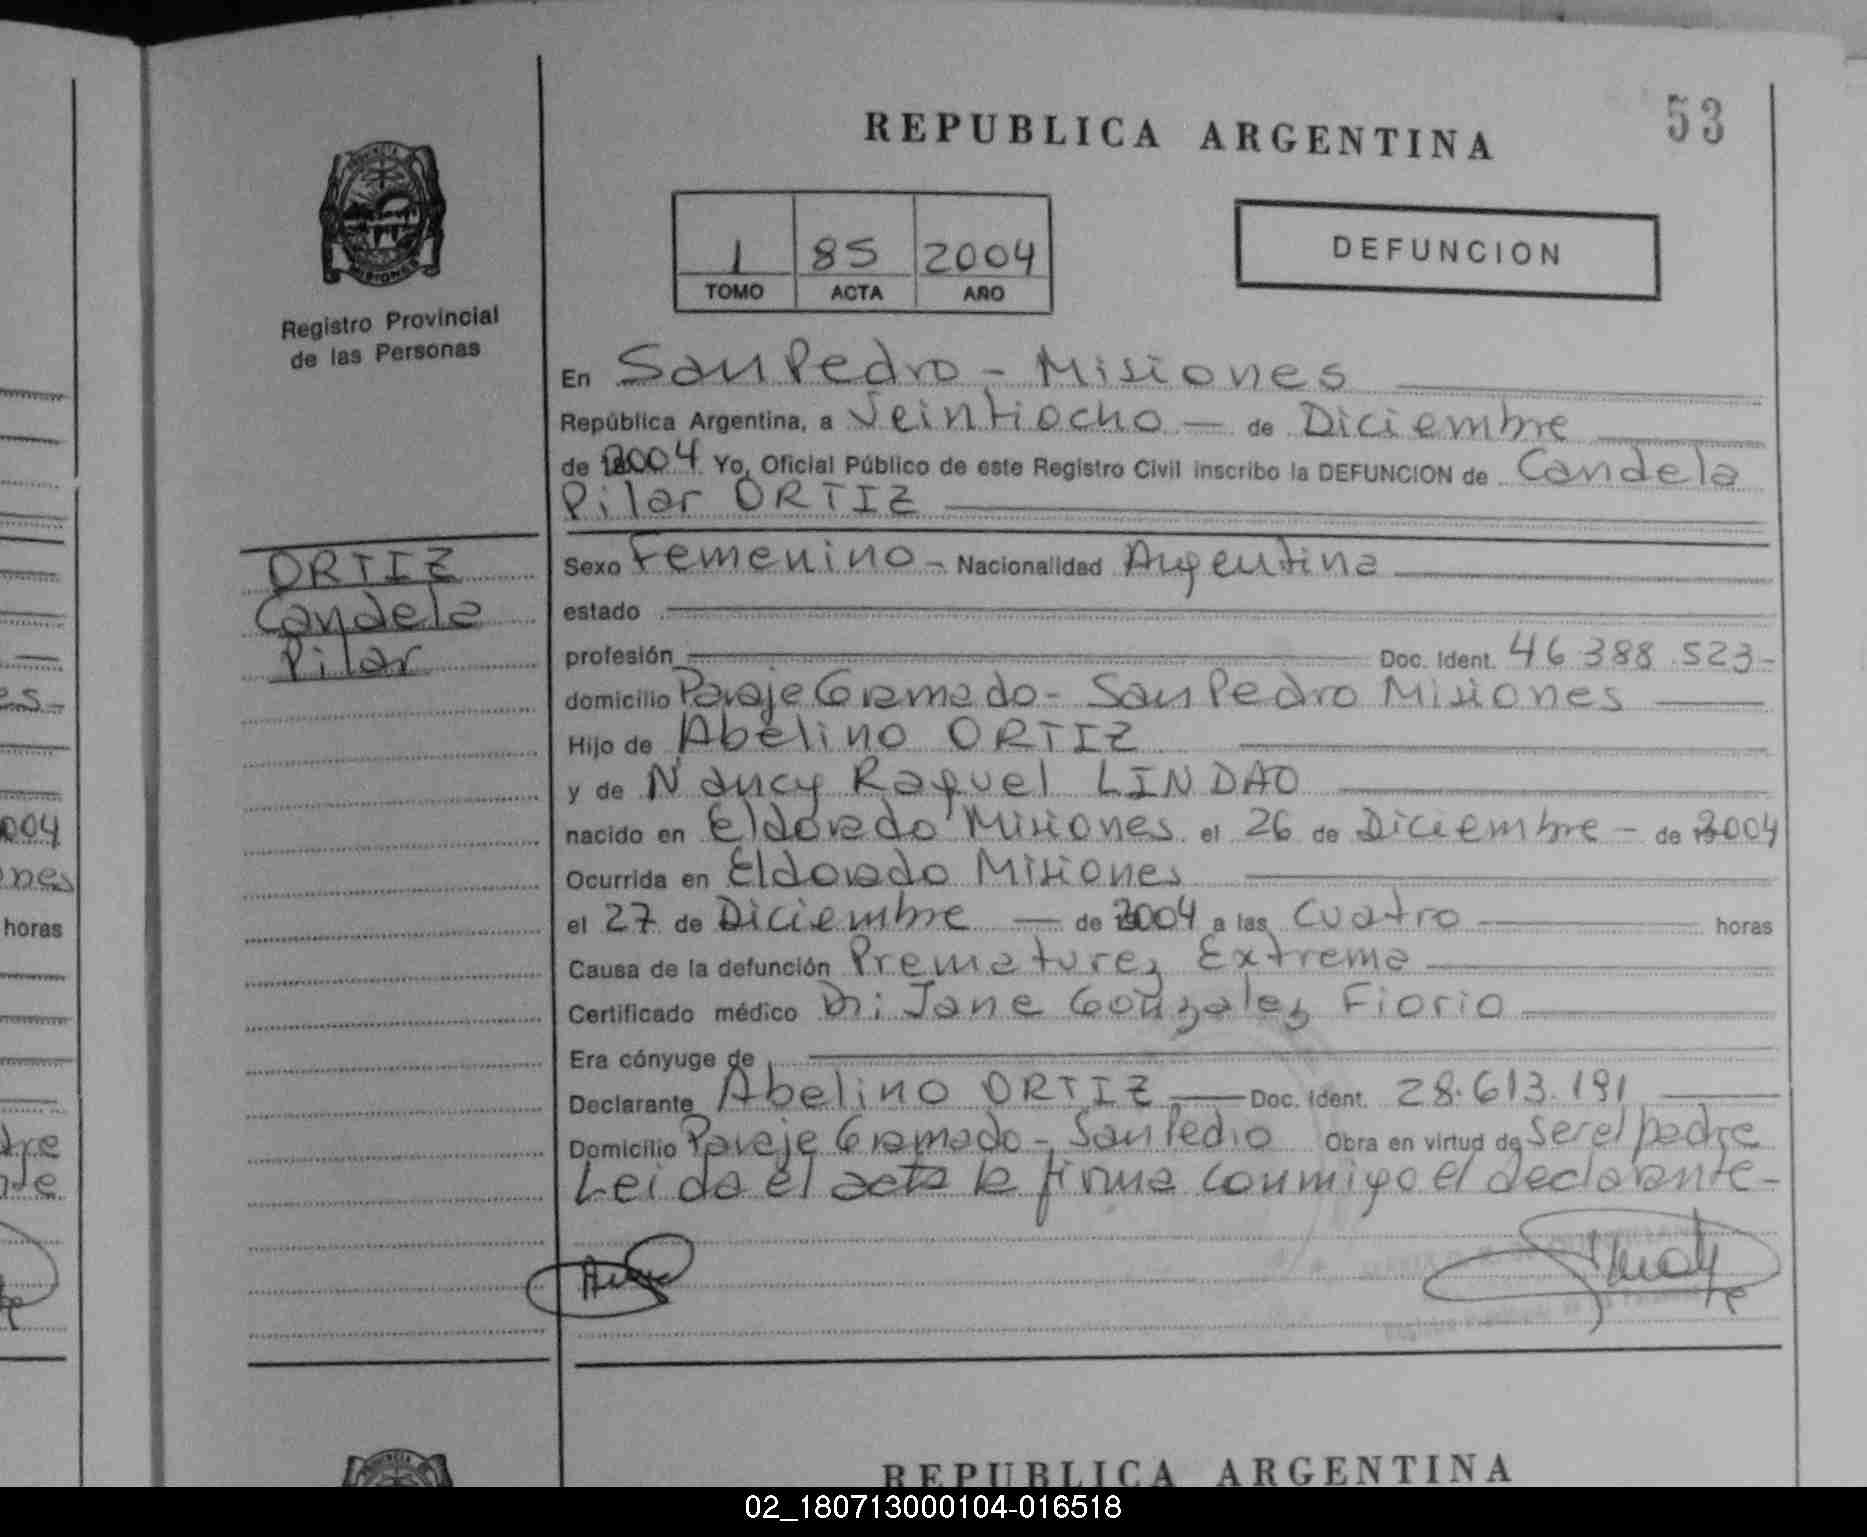 53
REPUBLICA ARGENTINA
PROVINCIA
MISIONES
Registro Provincial
de las Personas
1 85 2004
TOMO ACTA AÑO
DEFUNCION
En San Pedro - Misiones
República Argentina, a Veintiocho - de Diciembre
de 2004 Yo, Oficial Público de este Registro Civil inscribo la DEFUNCION de Candela
Pilar ORTIZ
ORTIZ
Candela
Pilar
Sexo Femenino - Nacionalidad Argentina
estado
profesión Doc. Ident. 46 388 523-
domicilio Paraje Gramado - San Pedro Misiones
Hijo de Abelino ORTIZ
y de Nancy Raquel LINDAO
nacido en Eldorado Misiones el 26 de Diciembre - de 2004
Ocurrida en Eldorado Misiones
el 27 de Diciembre - de 2004 a las Cuatro horas
Causa de la defunción Prematurez Extrema
Certificado médico Dr: Jane Gonzalez Fiorio
Era cónyuge de
Declarante Abelino ORTIZ - Doc. Ident. 28.613.191
Domicilio Paraje Gramado - San Pedro Obra en virtud de Ser el padre
Leida el acta la firma conmigo el declarante-
004
ones
horas
REPUBLICA ARGENTINA
02_180713000104-016518